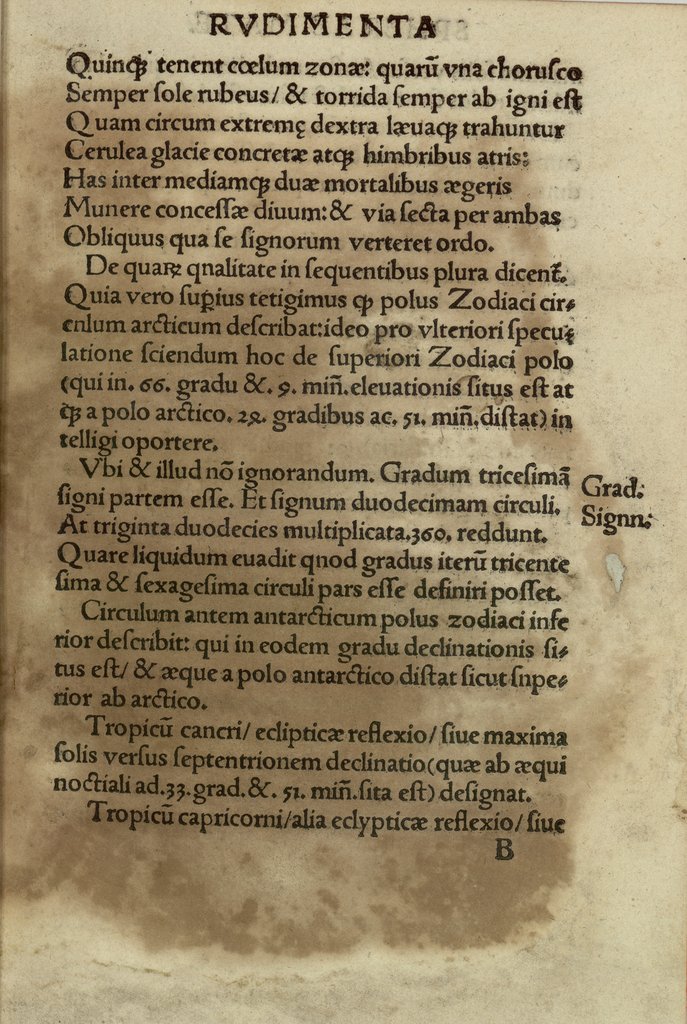 RVDIMENTA
Quinqꝫ tenent cœlum zonæ: quarū vna choruſco
Semper ſole rubeus/ & torrida ſemper ab igni eſt
Quam circum extremę dextra læuaqꝫ trahuntur
Cerulea glacie concretæ atqꝫ himbribus atris:
Has inter mediamqꝫ duæ mortalibus ægeris
Munere conceſſæ diuum: & via ſecta per ambas
Obliquus qua ſe ſignorum verteret ordo.
De quaꝝ qnalitate in ſequentibus plura dicent̃.
Quia vero ſuꝑius tetigimus ꝙ polus Zodiaci cir⸗
cnlum arcticum deſcribat:ideo pro vlteriori ſpecu⸗
latione ſciendum hoc de ſuperiori Zodiaci polo
(qui in. 66. gradu &. 9. miñ.eleuationis ſitus eſt at
qꝫ a polo arctico. 2ꝛ. gradibus ac. 51. miñ.diſtat) in
telligi oportere.
Vbi & illud nō ignorandum. Gradum triceſimā
ſigni partem eſſe. Et ſignum duodecimam circuli.
At triginta duodecies multiplicata.360. reddunt.
Quare liquidum euadit qnod gradus iterū tricente
ſima & ſexageſima circuli pars eſſe definiri poſſet.
Grad:
Signn:
Circulum antem antarcticum polus zodiaci infe
rior deſcribit: qui in eodem gradu declinationis ſi⸗
tus eſt/ & æque a polo antarctico diſtat ſicut ſnpe⸗
rior ab arctico.
Tropicū cancri/ eclipticæ reflexio/ ſiue maxima
ſolis verſus ſeptentrionem declinatio(quæ ab æqui
noctiali ad.33.grad.&. 51. miñ.ſita eſt) deſignat.
Tropicū capricorni/alia eclypticæ reflexio/ ſiue
B